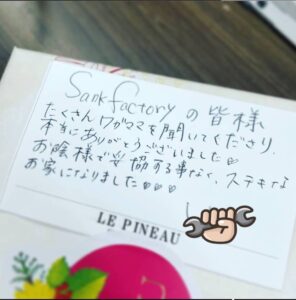 Sank factory の皆様
たくさんワガママを聞いてくださり、
本当にありがとうございました♡
お陰様で妥協する事なく、ステキな
お家になりました♡♡♡
LE PINEAU